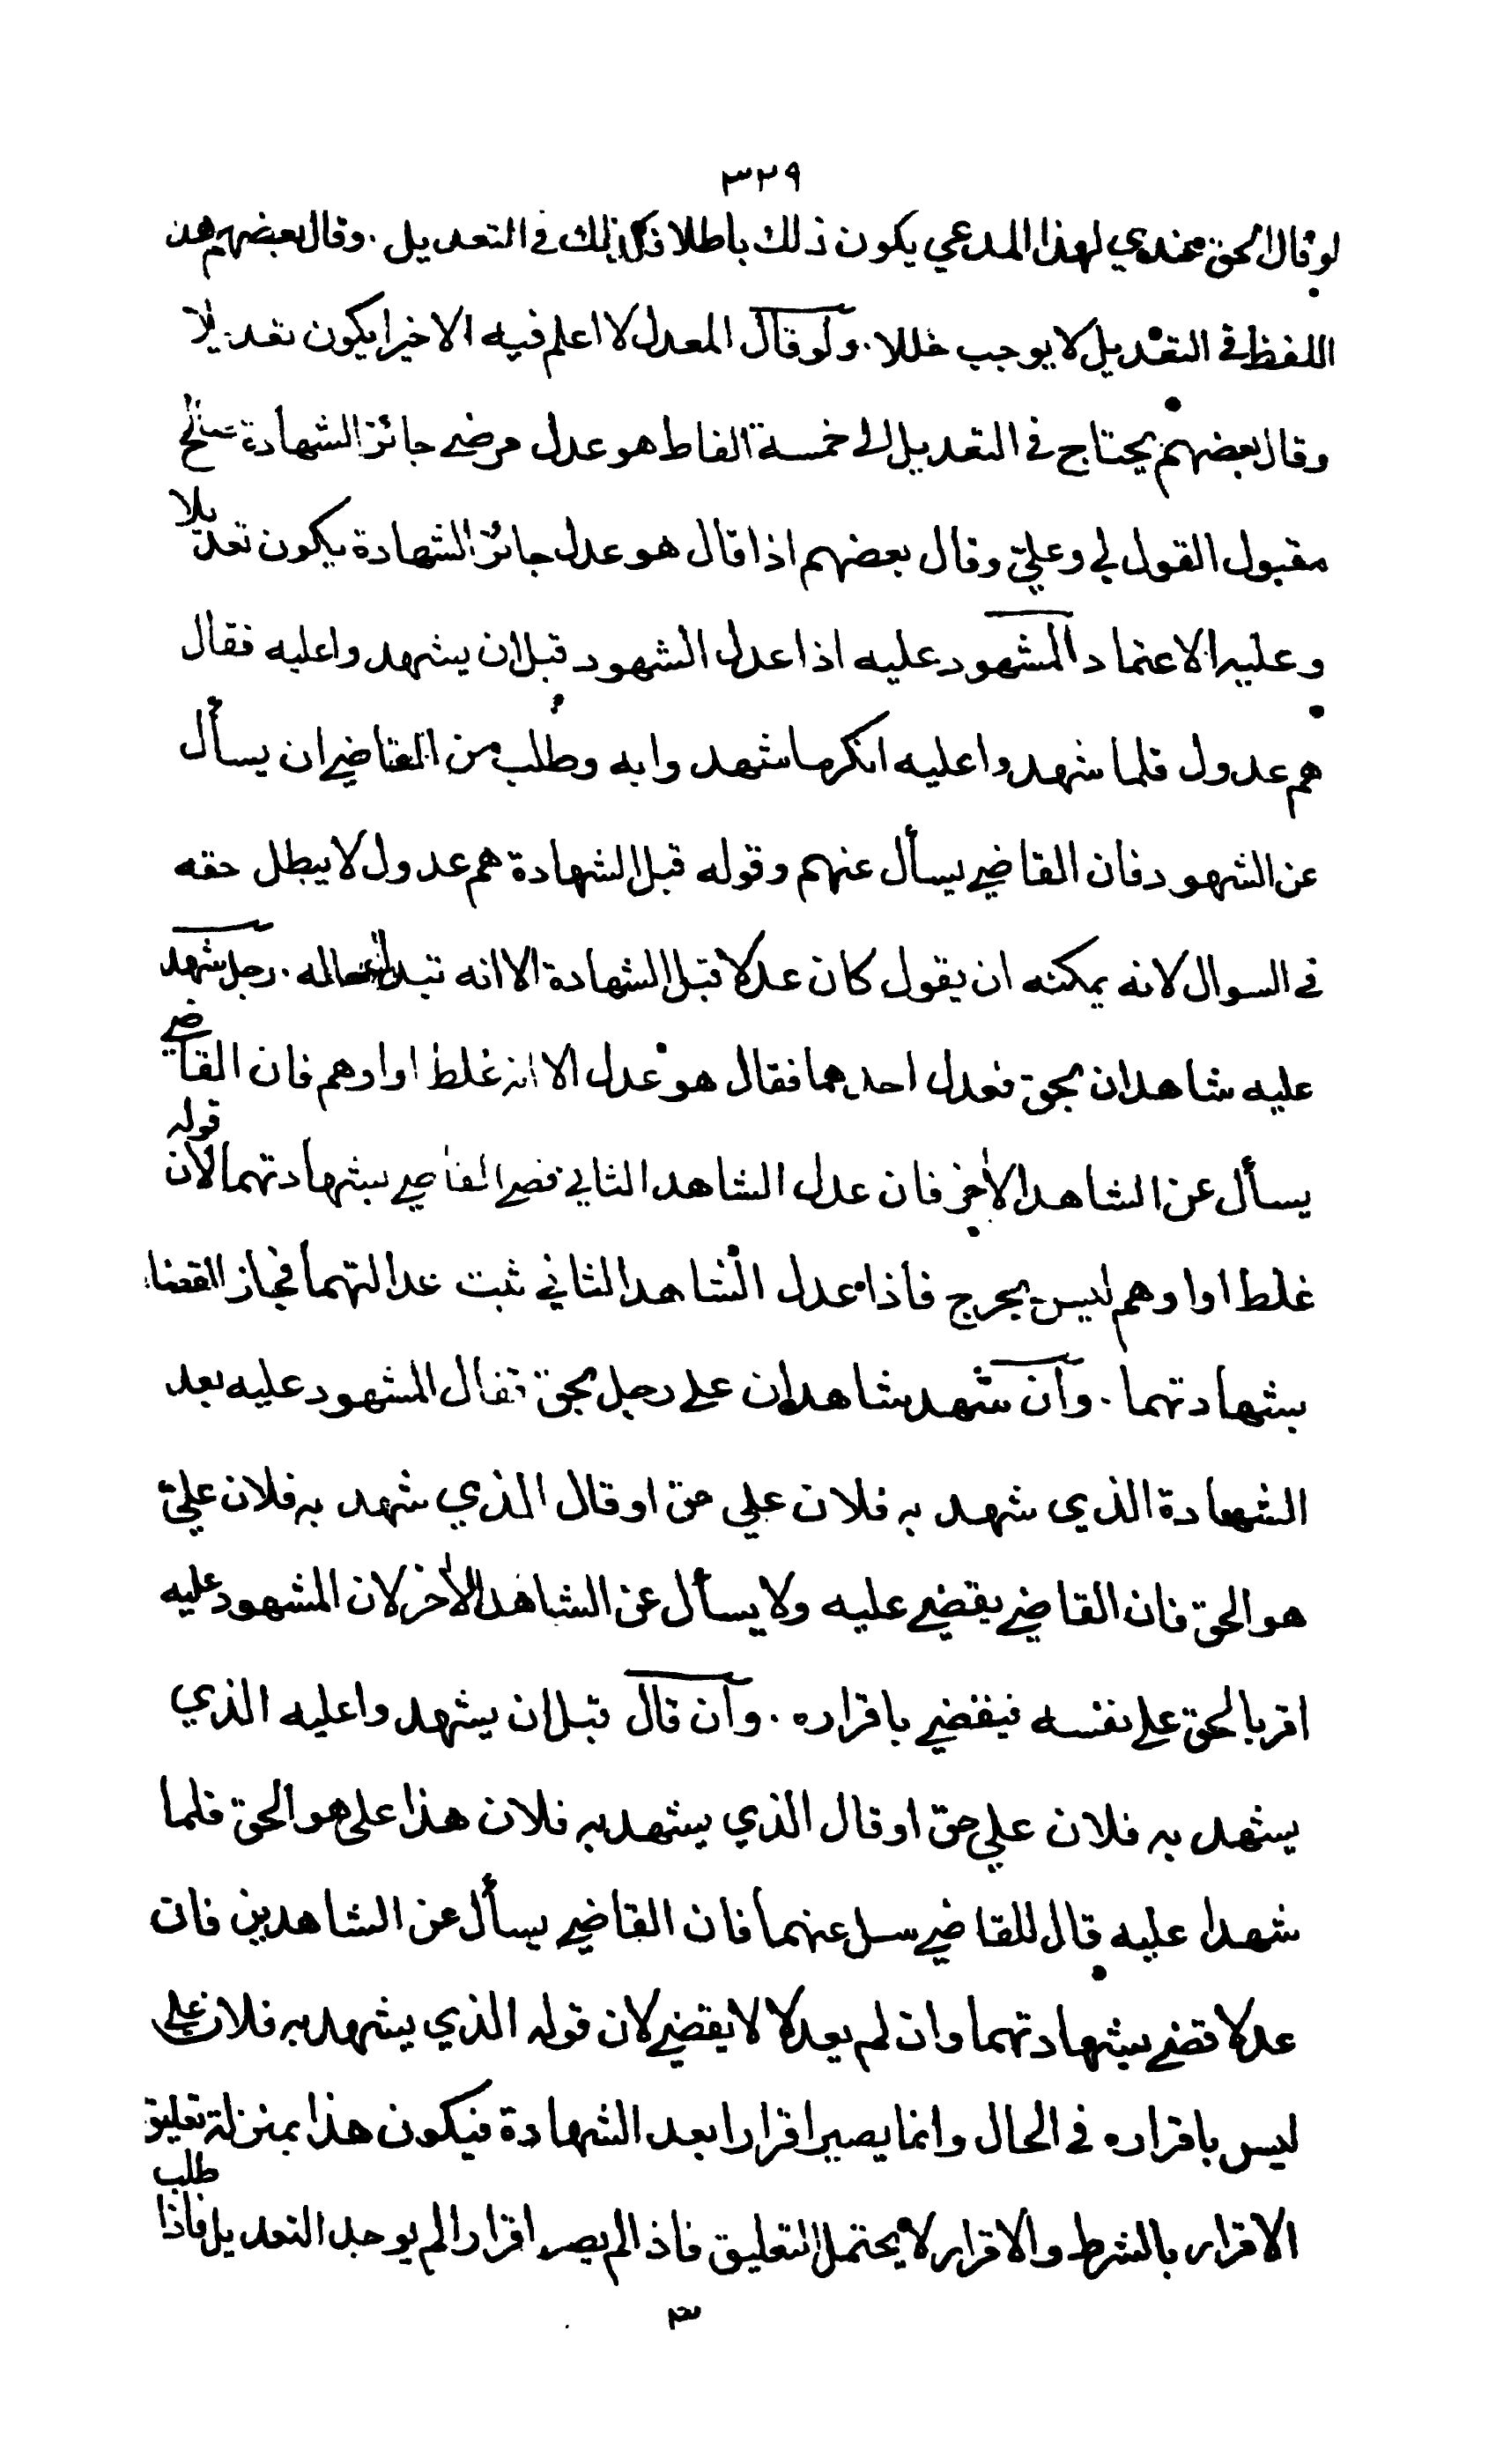 ٣٢٩
لو قال الحق عندي لهذا المدعي يكون ذلك باطلا فكذلك في التعديل . وقال بعضهم هذ
اللفظ في التعديل لا يوجب خللا . ولو قال المعدل لا اعلم فيه الا خيرا يكون تعديلا
وقال بعضهم يحتاج في التعديل الى خمسة الفاظ هو عدل مرضي جائز الشهادة صالح
مقبول القول لي وعليّ وقال بعضهم اذا قال هو عدل جائز الشهادة يكون تعديلا
وعليه الاعتماد المشهود عليه اذا عدل الشهود قبل ان يشهدوا عليه فقال
هم عدول فلما شهدوا عليه انكر ما شهدوا به وطلب من القاضي ان يسأل
عن الشهود فان القاضي يسأل عنهم وقوله قبل الشهادة هم عدول لا يبطل حقه
في السوال لانه يمكنه ان يقول كان عدلا قبل الشهادة الا انه تبدل حاله . رجل شهد
عليه شاهدان بحق فعدل احدهما فقال هو عدل الا انه غلط او اوهم فان القاضي
يسأل عن الشاهد الاخر فان عدل الشاهد الثاني قضى القاضي بشهادتهما لان قوله
غلط او اوهم ليس بجرح فاذا عدل الشاهد الثاني ثبت عدالتهما فجاز القضاء
بشهادتهما . وان شهد شاهدان على رجل بحق فقال المشهود عليه بعد
الشهادة الذي شهد به فلان علي حق او قال الذي شهد به فلان عليّ
هو الحق فان القاضي يقضي عليه ولا يسأل عن الشاهد الاخر لان المشهود عليه
اقر بالحق على نفسه فيقضي باقراره . وان قال قبل ان يشهدوا عليه الذي
يشهد به فلان علي حق او قال الذي يشهد به فلان هذا على هو الحق فلما
شهدا عليه قال للقاضي سل عنهما فان القاضي يسأل عن الشاهدين فان
عدلا قضى بشهادتهما وان لم يعدلا لا يقضي لان قوله الذي يشهد به فلان علي
ليس باقراره في الحال وانما يصير اقرارا بعد الشهادة فيكون هذا بمنزلة تعليق
الاقرار بالشرط والاقرار لا يحتمل التعليق فاذا لم يصر اقرارا لم يوجد التعديل فاذا طلب
٣